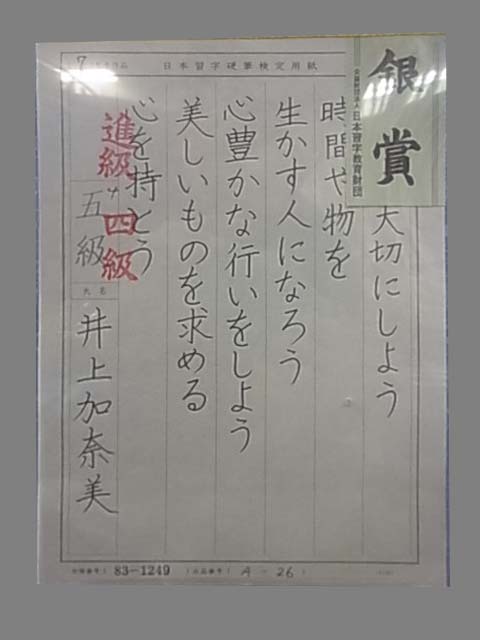 日本習字硬筆検定用紙
銀賞
公益財団法人日本習字教育財団
大切にしよう
時間や物を
生かす人になろう
心豊かな行いをしよう
美しいものを求める
心を持とう
進級 四級
五級
氏名
井上加奈美
83-1249
A-26